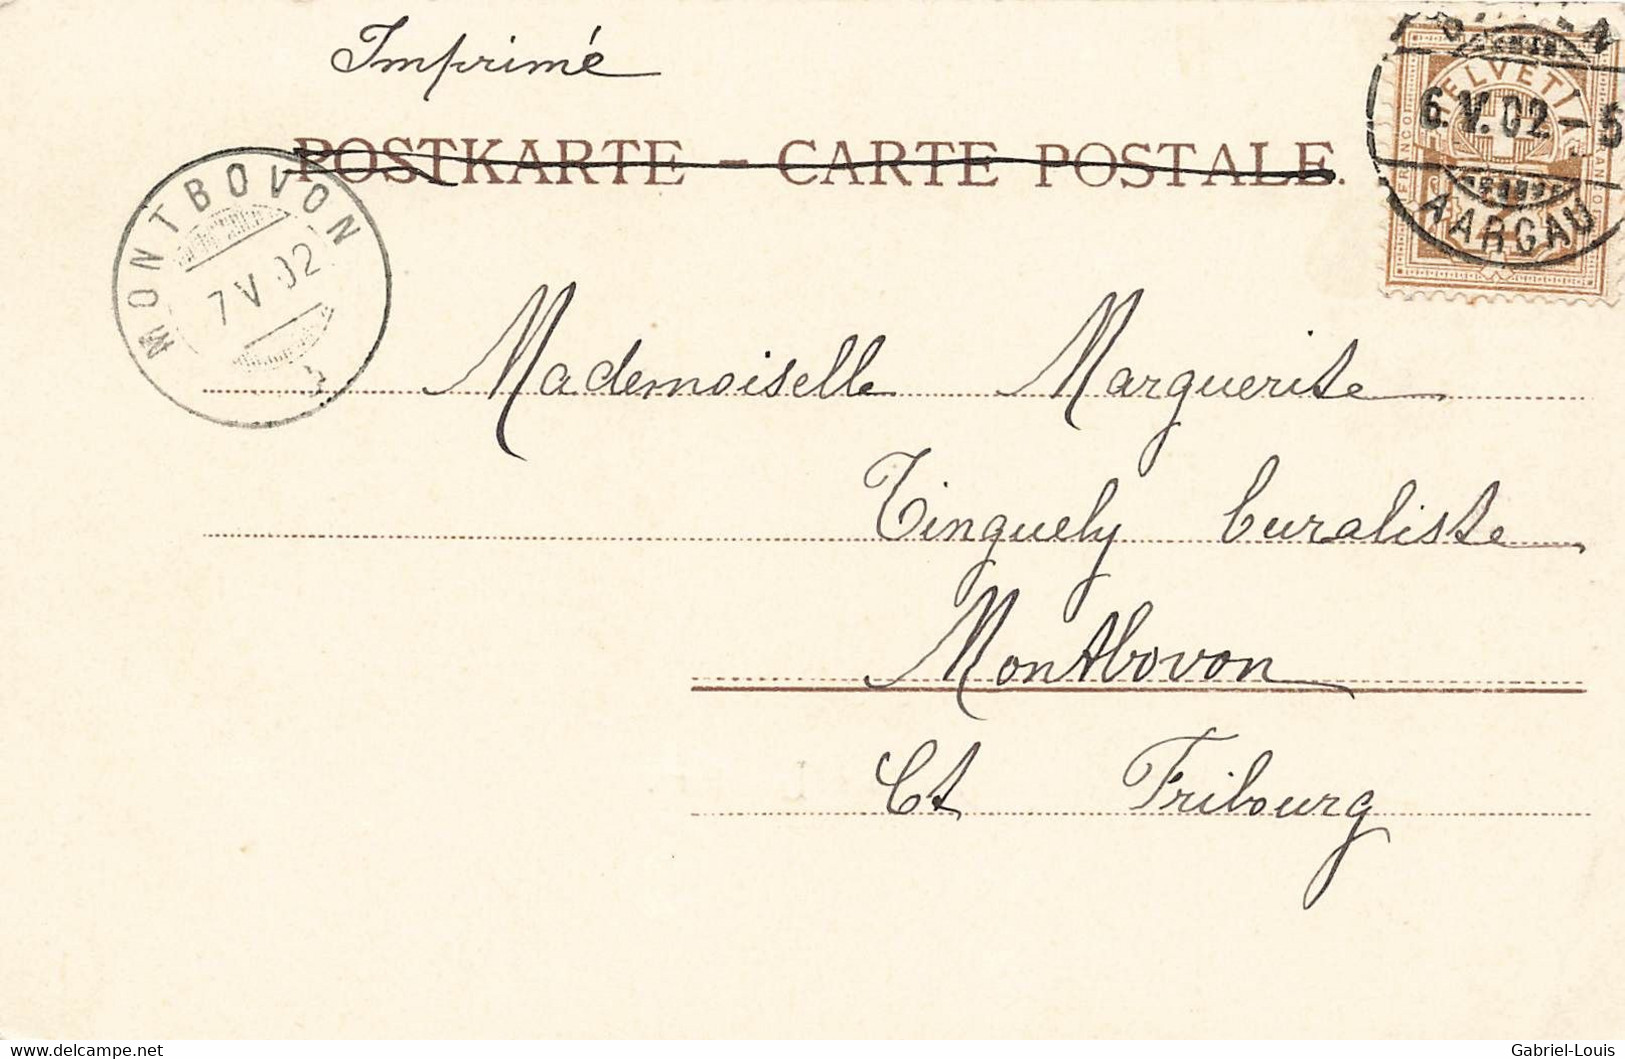 Imprimé
POSTKARTE - CARTE POSTALE.
MONTBOVON
7 V 02
HELVETIA
FRANCO
FRANCO
2
6.V.02.-5
AARGAU
Mademoiselle Marguerite
Tinguely buraliste
Montbovon
Ct Fribourg
delcampe.net
Gabriel-Louis